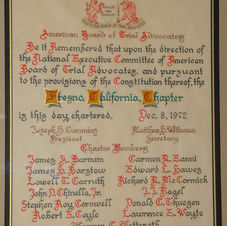 American Board of Trial Advocates
Be it Remembered that upon the direction of
the National Executive Committee of American
Board of Trial Advocates, and pursuant
to the provisions of the Constitution thereof, the
Fresno, California, Chapter
is this day, chartered. Dec. 8, 1972
Joseph H. Cummins Matthew
President Secretary
Charter Members
James A. Barnum Carmen A. Eanni
James H. Barstow Edward L. Fawcz
Lowell T. Carruth Richard R. McCormick
John D. Chinello, Jr. J. J. Nagel
Stephen Roy Cornwell Donald G. Thuesen
Robert E. Coyle Lawrence E. Wayte